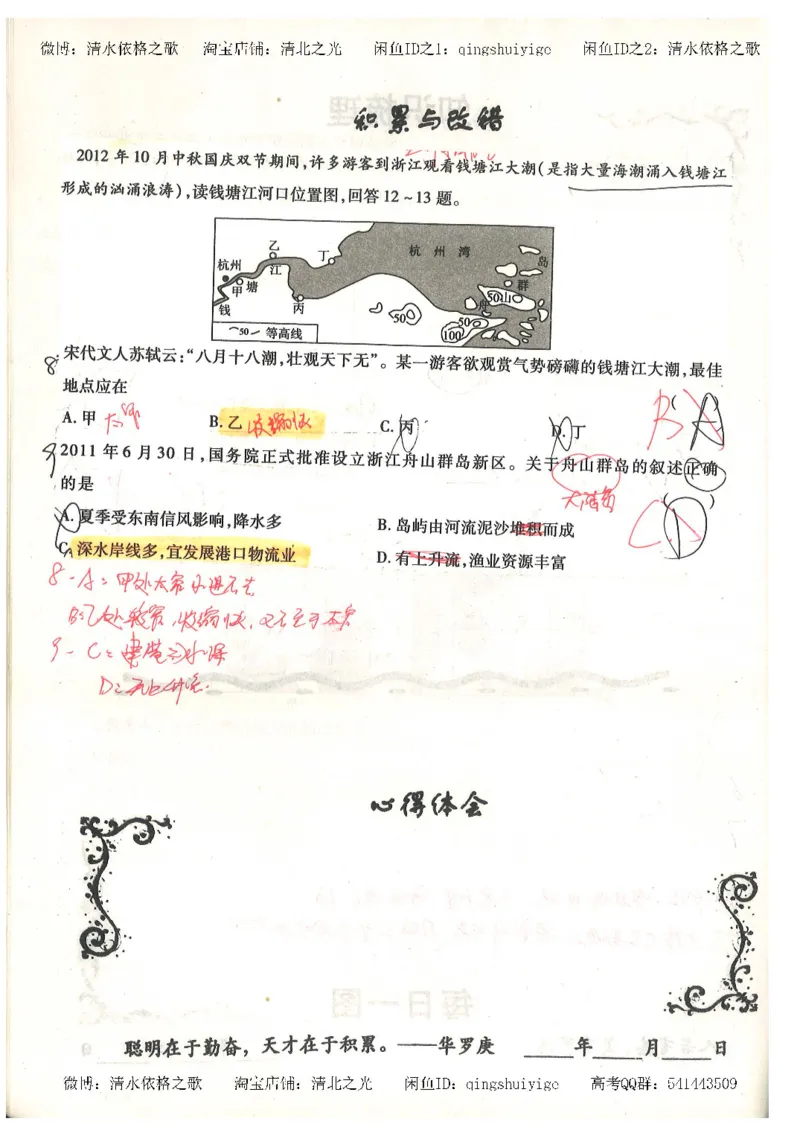 微博：清水依格之歌 淘宝店铺：清北之光 闲鱼ID之1：qingshuiyige 闲鱼ID之2：清水依格之歌
积累与改错
2012年10月中秋国庆双节期间，许多游客到浙江观看钱塘江大潮(是指大量海潮涌入钱塘江
形成的汹涌浪涛)，读钱塘江河口位置图，回答12～13题。
乙 丁 杭州湾 岛
杭州 江 群
甲 塘 50 山
钱 丙 50 50 舟
50 等高线 100
8. 宋代文人苏轼云：“八月十八潮，壮观天下无”。某一游客欲观赏气势磅礴的钱塘江大潮，最佳
地点应在 ( )
A. 甲 B. 乙 C. 丙 D. 丁 B A
9 2011年6月30日，国务院正式批准设立浙江舟山群岛新区。关于舟山群岛的叙述正确
的是 大陆岛 ( )
A. 夏季受东南信风影响，降水多 B. 岛屿由河流泥沙堆积而成
C. 深水岸线多，宜发展港口物流业 D. 有上升流，渔业资源丰富
8-A：甲处太窄
B：乙处较窄，收缩快，
9-C：建港 水深
D：无上升流.
心得体会
聪明在于勤奋，天才在于积累。——华罗庚 年 月 日
微博：清水依格之歌 淘宝店铺：清北之光 闲鱼ID：qingshuiyige 高考QQ群：541443509